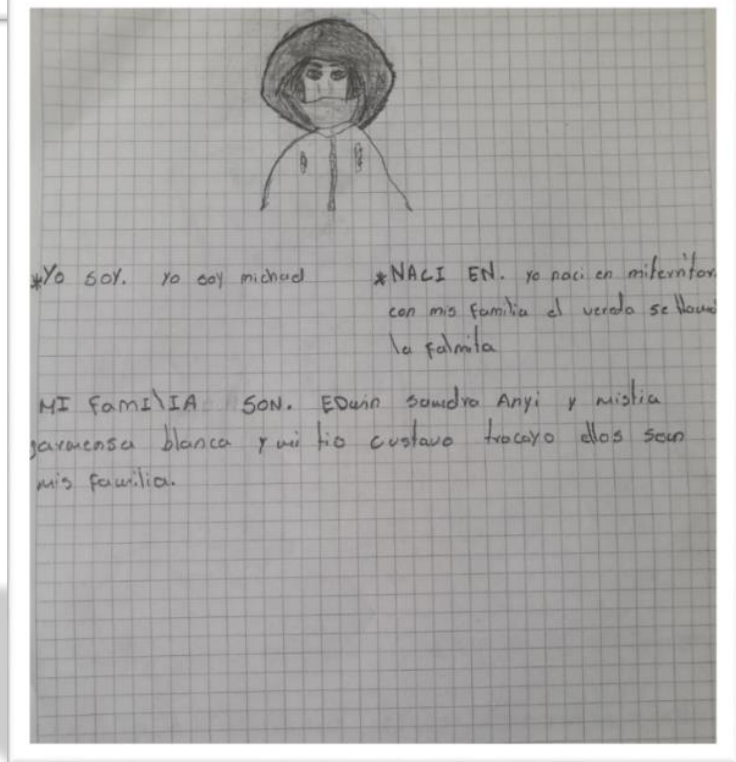 *Yo SOY. Yo soy michael
*NACI EN. yo naci en miterritor
con mis familia el vereda se llama
la palmita
MI FamilIA SON. EDwin sandra Anyi y mistia
blanca y mi tio custavo trocayo ellos son
mis familia.